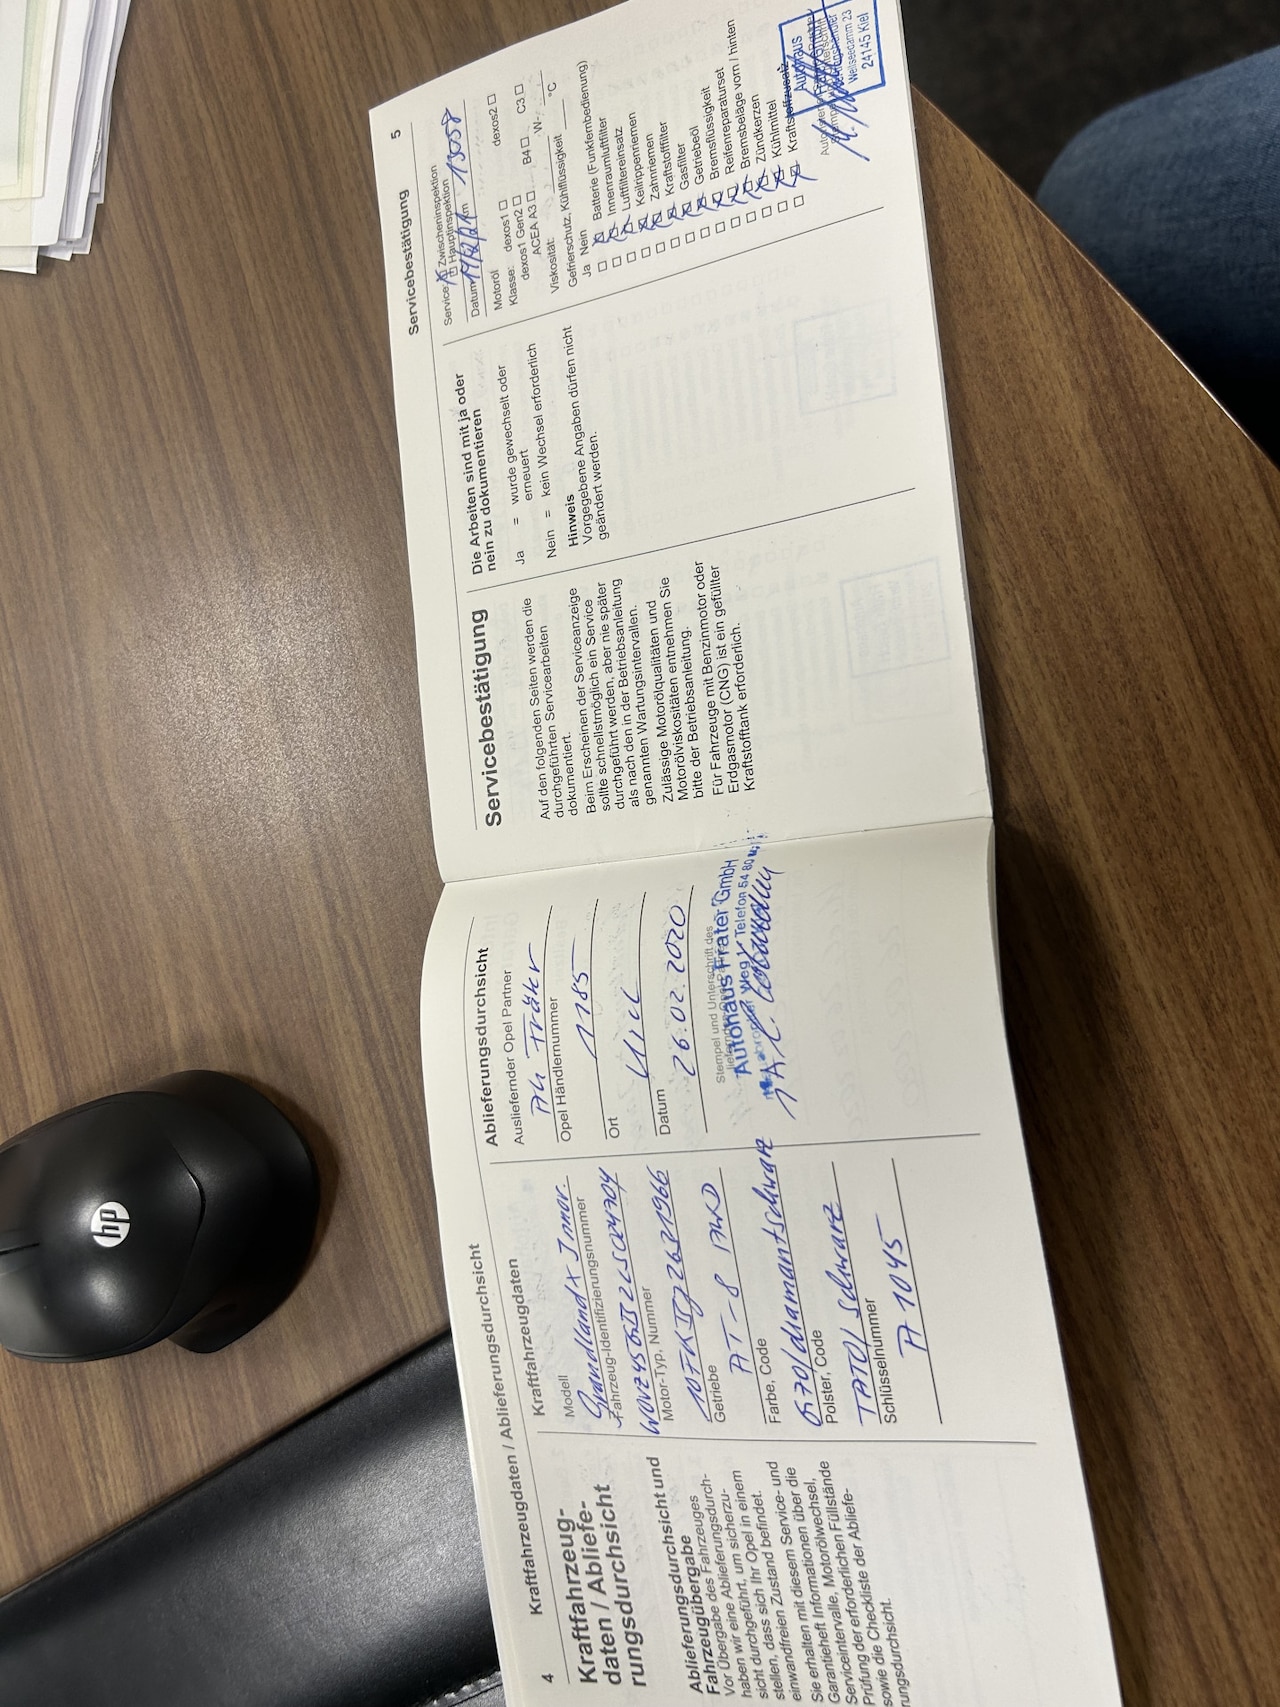 4
Kraftfahrzeugdaten / Ablieferungsdurchsicht
Kraftfahrzeug-
daten / Abliefe-
rungsdurchsicht
Ablieferungsdurchsicht und
Fahrzeugübergabe
Vor Übergabe des Fahrzeuges
haben wir eine Ablieferungsdurch-
sicht durchgeführt, um sicherzu-
stellen, dass sich Ihr Opel in einem
einwandfreien Zustand befindet.
Sie erhalten mit diesem Service- und
Garantieheft Informationen über die
Serviceintervalle, Motorölwechsel,
Prüfung der erforderlichen Füllstände
sowie die Checkliste der Abliefe-
rungsdurchsicht.
Kraftfahrzeugdaten
Modell
Grandland X Innov.
Fahrzeug-Identifizierungsnummer
Motor-Typ, Nummer
Getriebe
AT-8
Farbe, Code
diamantschwarz
Polster, Code
TATO/ schwarz
Schlüsselnummer
A 1045
Ablieferungsdurchsicht
Ausliefernder Opel Partner
AH Fräter
Opel Händlernummer
1185
Ort
Kiel
Datum
26.02.2020
Stempel und Unterschrift des
Autohaus Fräter GmbH
Weg Telefon 54 80
Servicebestätigung
Auf den folgenden Seiten werden die
durchgeführten Servicearbeiten
dokumentiert.
Beim Erscheinen der Serviceanzeige
sollte schnellstmöglich ein Service
durchgeführt werden, aber nie später
als nach den in der Betriebsanleitung
genannten Wartungsintervallen.
Zulässige Motorölqualitäten und
Motorölviskositäten entnehmen Sie
bitte der Betriebsanleitung.
Für Fahrzeuge mit Benzinmotor oder
Erdgasmotor (CNG) ist ein gefüllter
Kraftstofftank erforderlich.
Die Arbeiten sind mit ja oder
nein zu dokumentieren
Ja = wurde gewechselt oder
erneuert
Nein = kein Wechsel erforderlich
Hinweis
Vorgegebene Angaben dürfen nicht
geändert werden.
Servicebestätigung 5
Service: Zwischeninspektion
Hauptinspektion
Datum km 13058
Motoröl
Klasse: dexos1 dexos2
dexos1 Gen2
ACEA A3 B4 C3
Viskosität: W-
Gefrierschutz, Kühlflüssigkeit °C
Ja Nein
Batterie (Funkfernbedienung)
Innenraumluftfilter
Luftfiltereinsatz
Keilrippenriemen
Zahnriemen
Kraftstofffilter
Gasfilter
Getriebeöl
Bremsflüssigkeit
Reifenreparaturset
Bremsbeläge vorn / hinten
Zündkerzen
Kühlmittel
Kraftstoffzusatz
Autohaus
Wellseedamm 23
24145 Kiel
hp